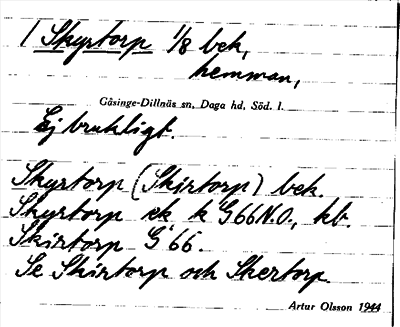 1 Skyrtorp 1/8 bek,
hemman,
Gåsinge-Dillnäs sn, Daga hd, Söd. l.
Ej brukligt.
Skyrtorp (Skirtorp) bek.
Skyrtorp ek k G 66 N.O., kb.
Skirtorp G 66.
Se Skirtorp och Skertorp.
Artur Olsson 1944